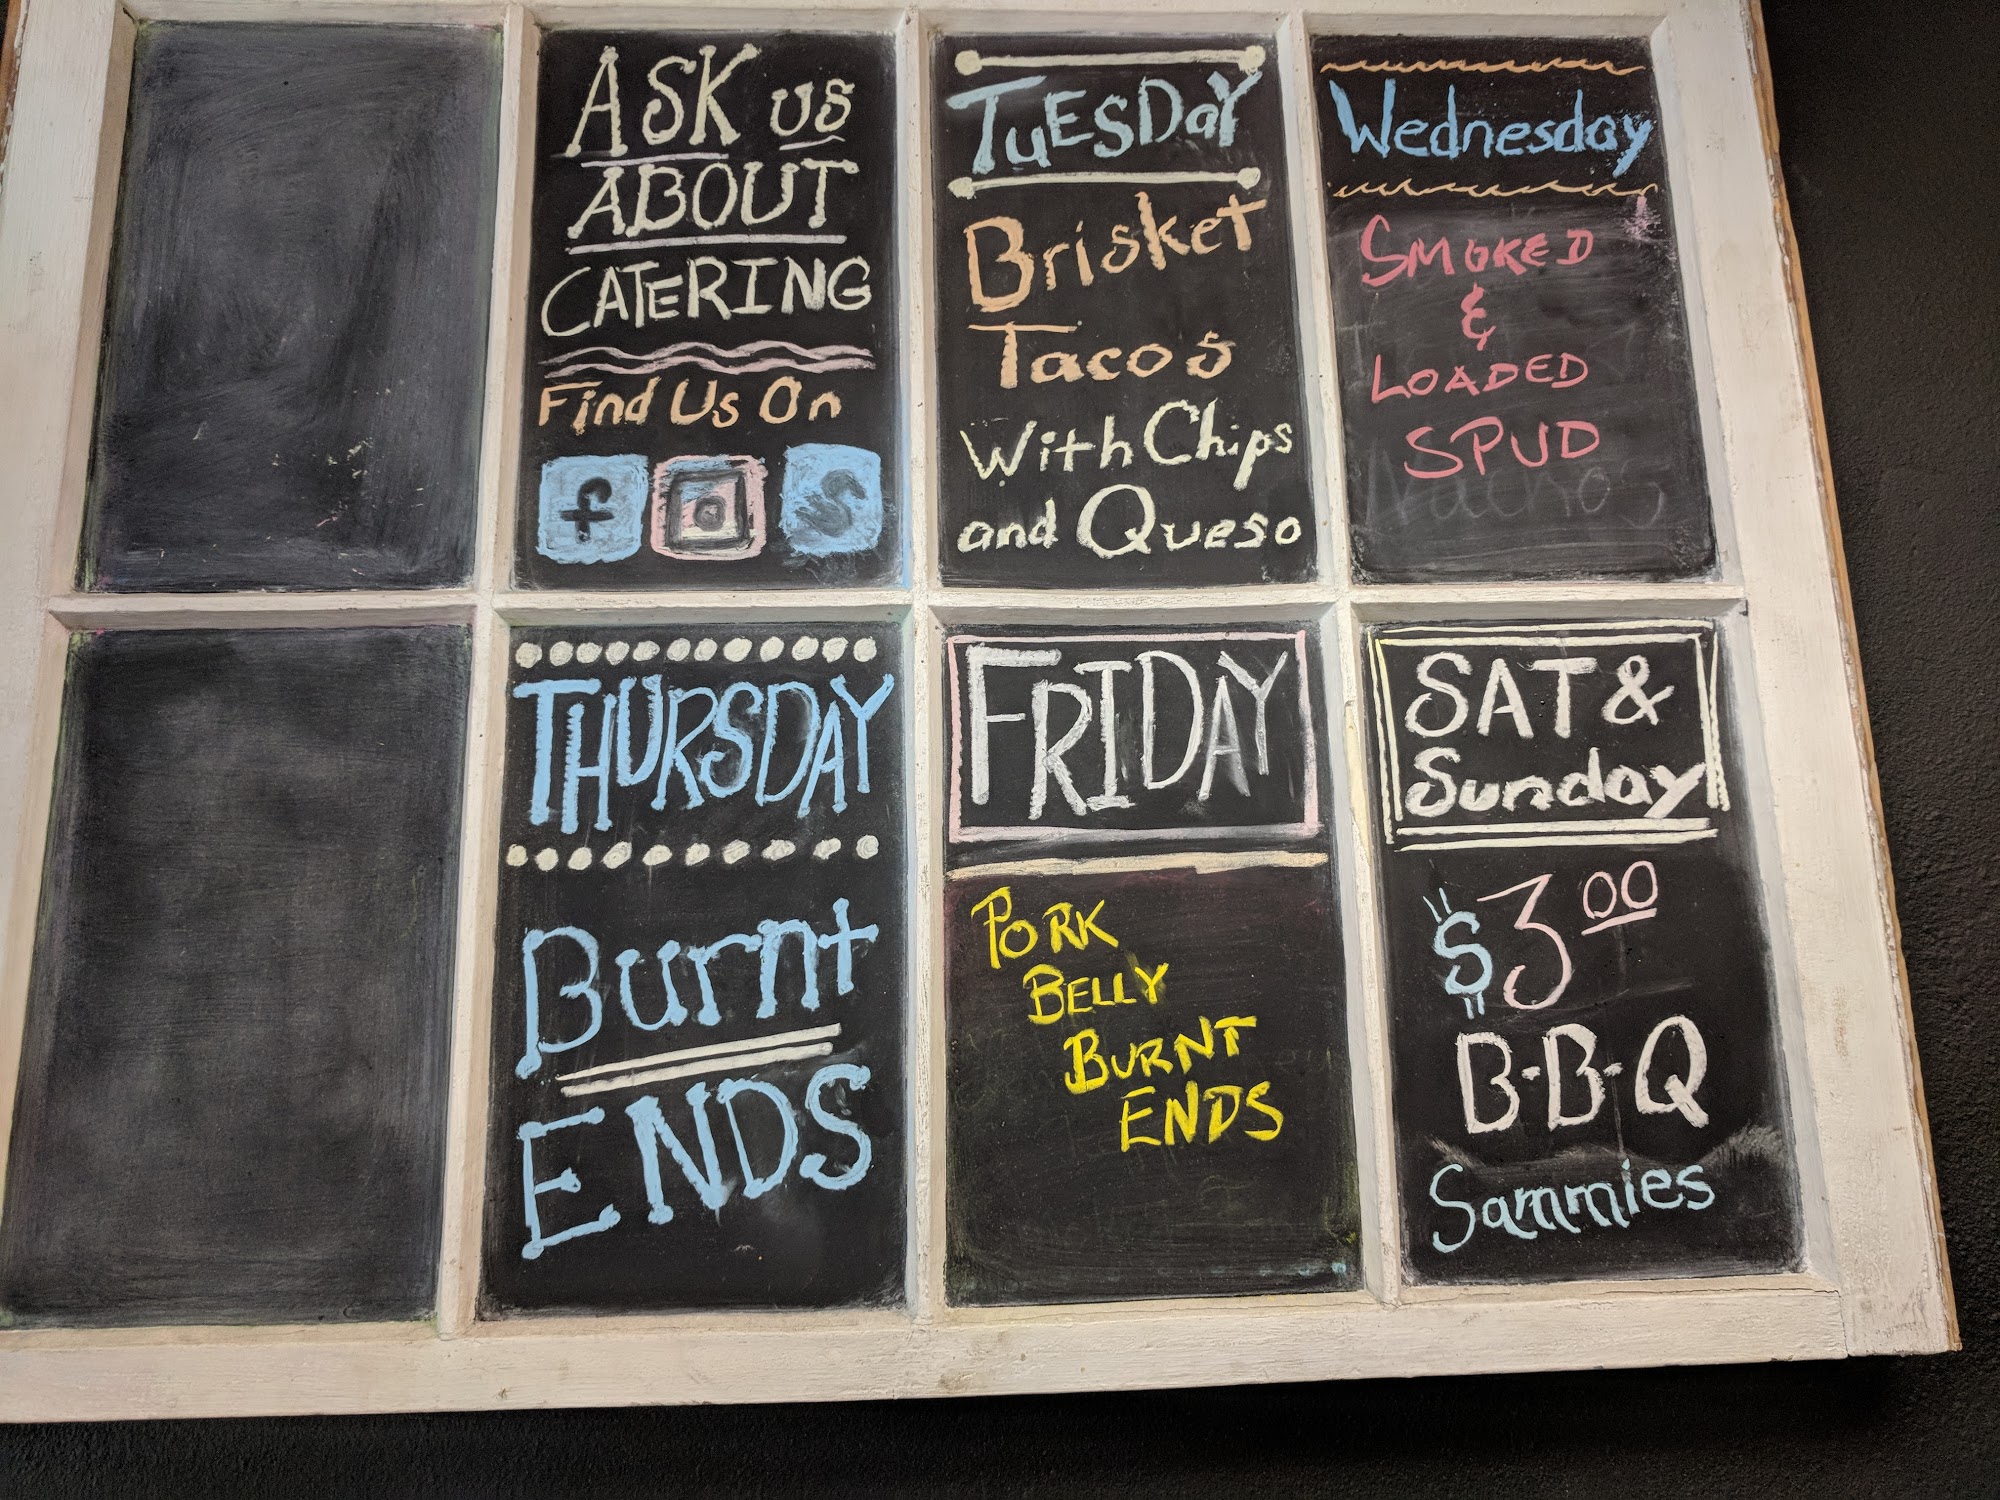 ASK us
ABOUT
CATERING
Find Us On
f
TUESDaY
Brisket
Tacos
With Chips
and Queso
Wednesday
SMOKED
&
LOADED
SPUD
Nachos
THURSDAY
Burnt
ENDS
FRIDAY
PORK
BELLY
BURNT
ENDS
SAT &
Sunday
$3.00
B-B-Q
Sammies